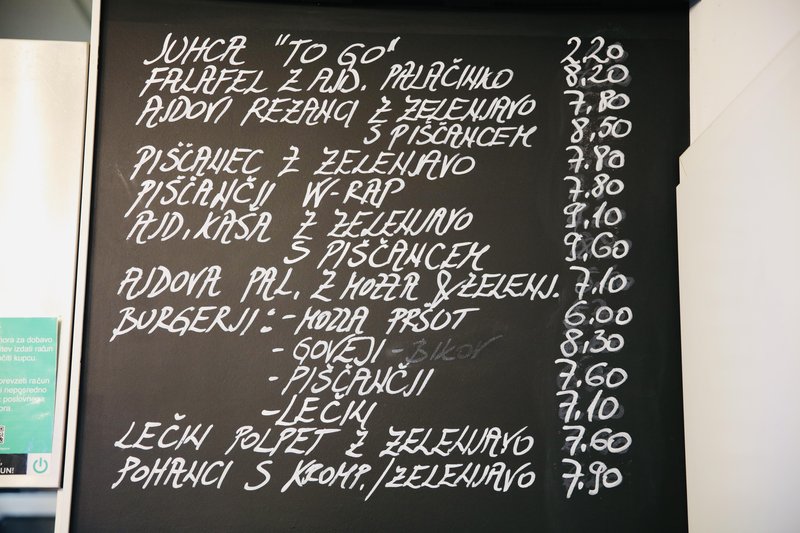 JUHCA "TO GO" 2,20
FALAFEL Z AJD. PALAČINKO 8,20
AJDOVI REZANCI Z ZELENJAVO 7,80
S PIŠČANCEM 8,50
PIŠČANEC Z ZELENJAVO 7.80
PIŠČANČJI W-RAP 7.80
AJD. KAŠA Z ZELENJAVO 9,10
S PIŠČANCEM 9,60
AJDOVA PAL. Z MOZZA & ZELENJ. 7,10
BURGERJI: - MOZZA PRŠUT 6.00
- GOVEJI - BIKOV 8,30
- PIŠČANČJI 7.60
- LEČIN 7.10
LEČIN POLPET Z ZELENJAVO 7.60
POHANCI S KROMP./ZELENJAVO 7.90
mora za dobavo
itev izdati račun
čiti kupcu.
prevzeti račun
i neposredno
poslovnega
ora.
UN!